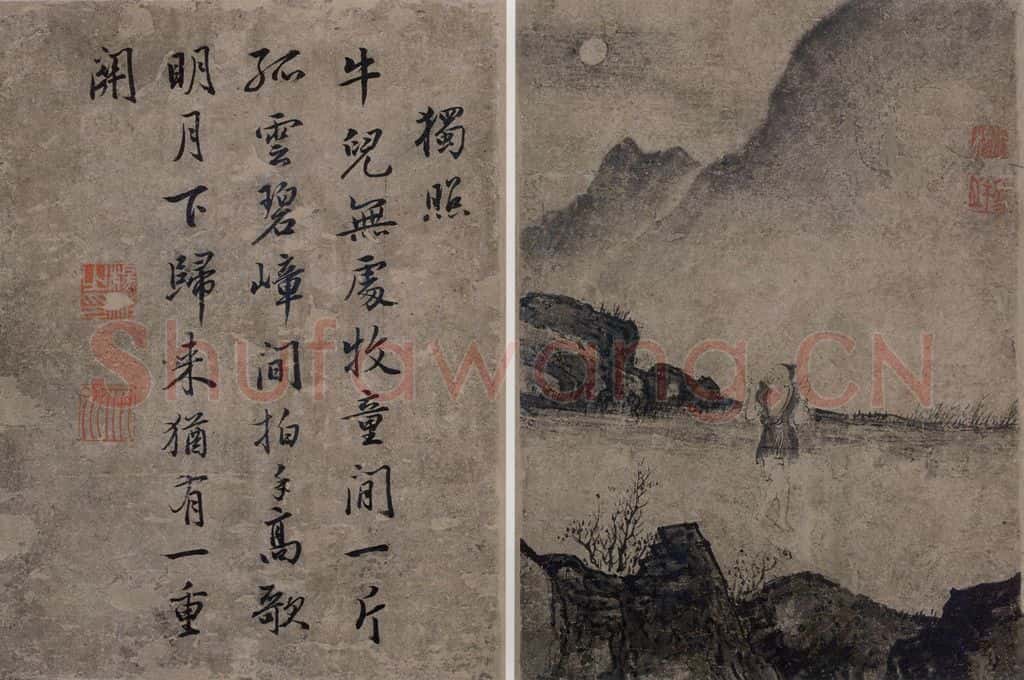 獨照
牛兒無處牧童閒一片
孤雲碧嶂間拍手高歌
明月下歸来猶有一重
関
Shufawang.CN